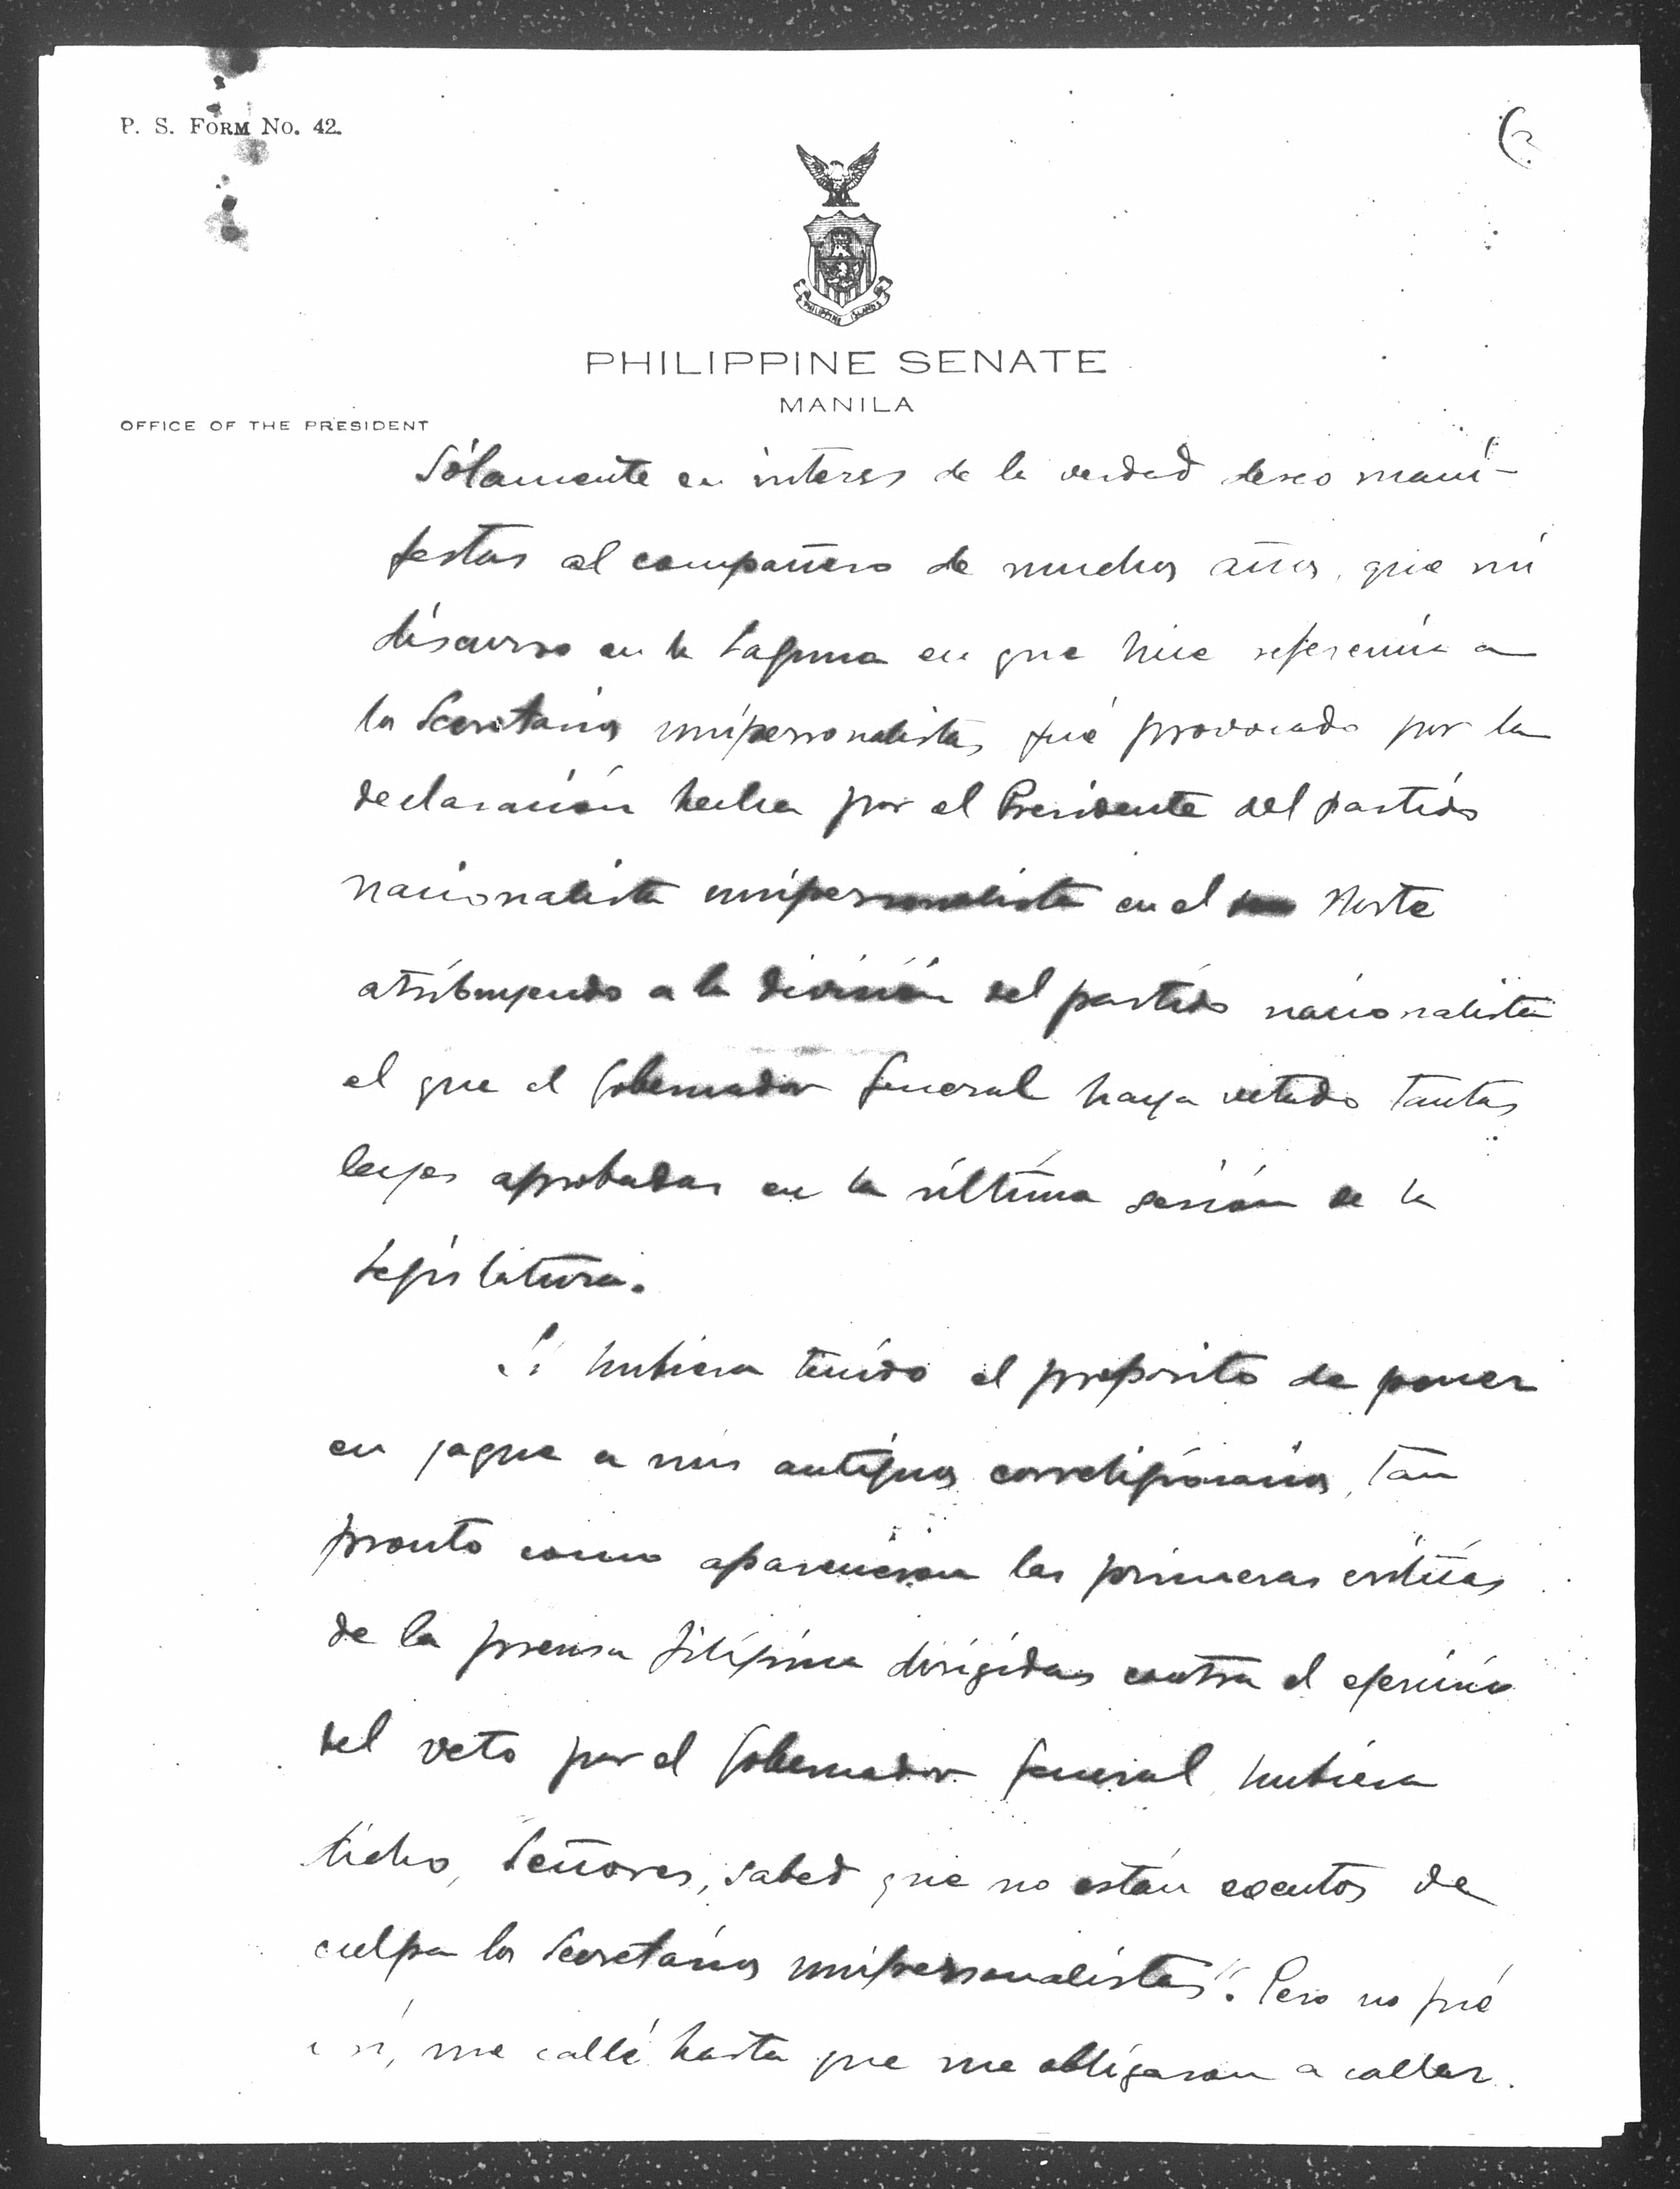 P. S. FORM NO. 42.
PHILIPPINE ISLANDS
PHILIPPINE SENATE
MANILA
OFFICE OF THE PRESIDENT
Sólamente en interes de la verdad deseo mani-
festar al compañero de muchos años, que mi
discurso en la Laguna en que hice referencia a
los Secretarios unipersonalistas fué provocado por la
declaración hecha por el Presidente del partido
nacionalista unipersonalista en el Norte
atribuyendo a la división del partido nacionalista
el que el Gobernador General haya vetado tantas
leyes aprobadas en la última sesión de la
Legislatura.
Si hubiera tenido el propósito de poner
en jaque a mis antiguos correligionarios, tan
pronto como aparecieron las primeras críticas
de la prensa filipina dirigidas contra el ejercicio
del veto por el Gobernador General, hubiera
dicho, Señores, sabed que no están exentos de
culpa los Secretarios unipersonalistas". Pero no fué
así, me callé hasta que me obligaron a callar.